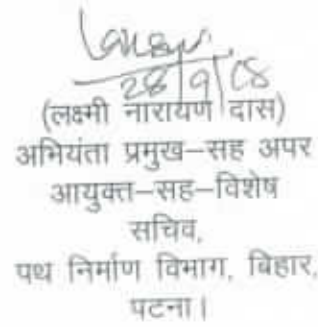 28/9/08
(लक्ष्मी नारायण दास)
अभियंता प्रमुख–सह अपर
आयुक्त–सह–विशेष
सचिव,
पथ निर्माण विभाग, बिहार,
पटना।